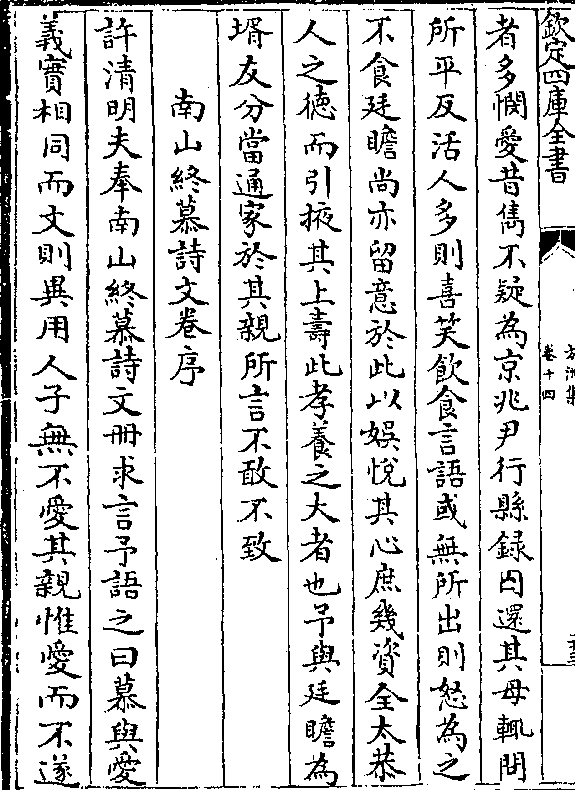 欽定四庫全書
卷十四
者多憫愛昔雋不疑為京兆尹行縣録囚還其母輒問
所平反活人多則喜笑飲食言語或無所出則怒為之
不食廷瞻尚亦留意於此以娱悅其心庶幾資全太恭
人之徳而引掖其上壽此孝養之大者也予與廷瞻為
壻友分當通家於其親所言不敢不致
南山終慕詩文卷序
許清明夫奉南山終慕詩文册求言予語之曰慕與愛
義實相同而文則異用人子無不愛其親惟愛而不遂